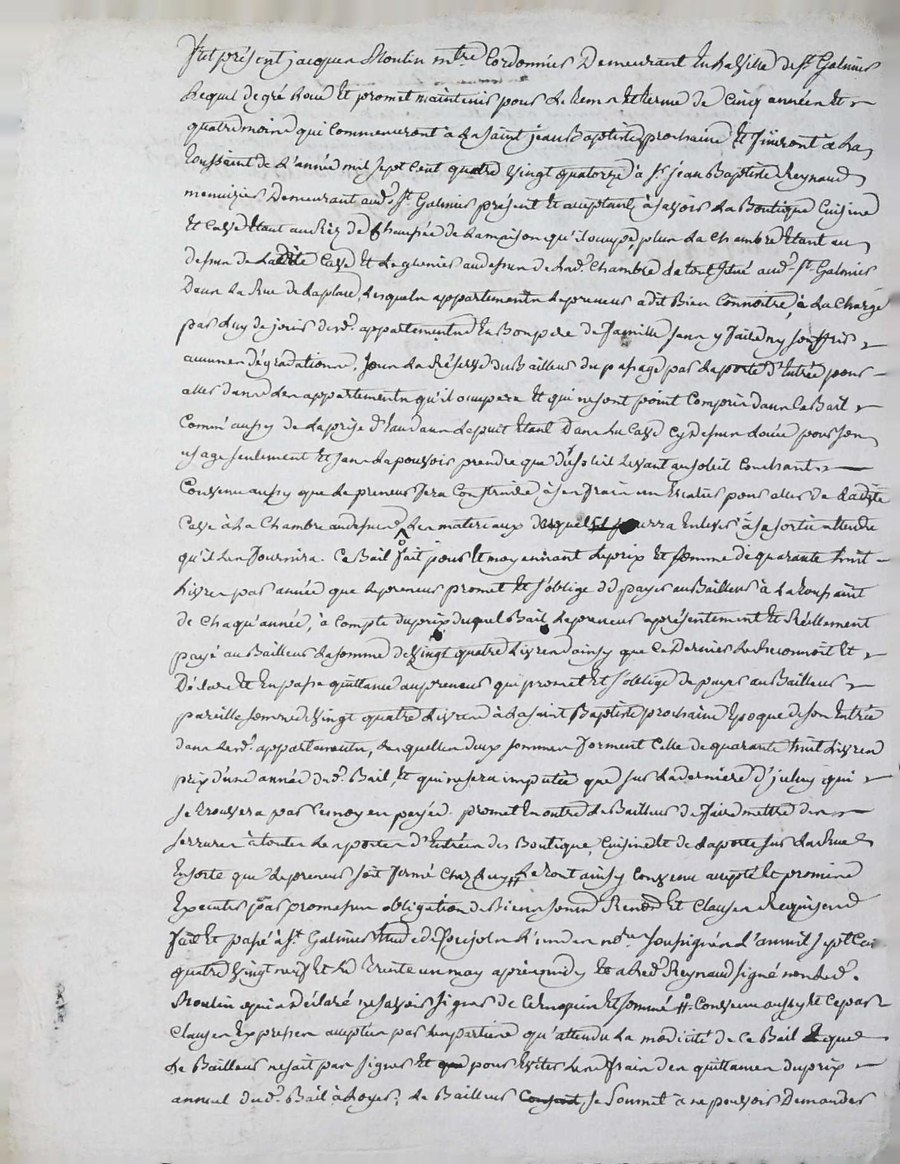 fut présent jacques Moulin mtre Cordonnier Demeurant En la Ville de st Galmier
Lequel de gré Loue Et promet maintenir pour Le tems Et terme de Cinq années Et
quatre moins qui Commenceront à La saint jean Baptiste prochaine Et finiront à La
toussaint de L'année mil sept Cent quatre Vingt quatorze à sr jean Baptiste Reynaud
menuizier Demeurant aud. st Galmier présent Et aceptant, à sçavoir La Boutique Cuisine
Et Casse Etant au Rez de Chaussée de La maison qu'il ocupe, plus La Chambre Etant au
dessus de Ladite Casse Et Le grenier au dessus de Lad. Chambre Le tout situé aud. st Galmier
Dans La Rue de La place, Lesquels appartements Le preneur a dit Bien Connoitre, à La Charge
par Luy de jouir desd. appartements En Bon pere de famille sans y faire ny souffrir
aucunes dégradations, sous La Réserve du Bailleur du passage par La porte d'Entrée pour
aller dans Les appartements qu'il ocupera Et qui ne sont point Compris dans Le Bail
Comm'aussy de La prise d'Eau dans Le puit Etant Dans La Casse Cy Dessus Louée pour son
usage seulement Et sans La pouvoir prendre que du soleil Levant au soleil Couchant
Convenu aussy que Le preneur sera Construire à ses frais un Escalier pour aller de Ladite
Casse à La Chambre au dessus, Les materiaux duquel il pourra Enlever à sa sortie attendu
qu'il Les fournira. Ce Bail fait pour Et moyennant Le prix Et somme de quarante huit
Livres par année que Le preneur promet Et s'oblige de payer au Bailleur à La toussaint
de Chaqu'année, à Compte du prix duquel Bail Le preneur a présentement Et Réellement
payé au Bailleur La somme de Vingt quatre Livres ainsy que Ce Dernier Le Reconnoit Et
Déclare Et En passe quittance au preneur qui promet Et s'oblige de payer au Bailleur
pareille somme de Vingt quatre Livres à La saint Baptiste prochaine Epoque de son Entrée
dans Lesd. appartements, Lesquelles deux sommes forment Celle de quarante huit Livres
prix d'une année dud. Bail, Et qui ne sera imputée que sur La derniere d'iceluy qui
se trouvera par Ce moyen payée. promet En outre Le Bailleur de faire mettre des
serrures à toutes Les portes d'Entrées des Boutique, Cuisine Et de La porte sur La Rue
Ensorte que Le preneur soit fermé Chez Luy, Le tout ainsy Convenu accepté Et promis
Executer par promesses obligation de Biens soum. Renon. Et Clauses Requises
fait Et passé à st. Galmier Etude de L'un des nres soussignés L'an mil sept Cent
quatre Vingt neuf Et Le trente un may après midy Et a Led. Reynaud signé non Led.
Moulin qui a Déclaré ne sçavoir signer de Ce Enquis Et sommé Convenu aussy Et Ce par
Clauses Expresses acceptées par Les parties qu'attendu La modicité de Ce Bail Et que
Le Bailleur ne sait pas signer Et pour Eviter Les frais des quittances du prix
annuel dud. Bail à Loyer, Le Bailleur se soumet à ne pouvoir Demander